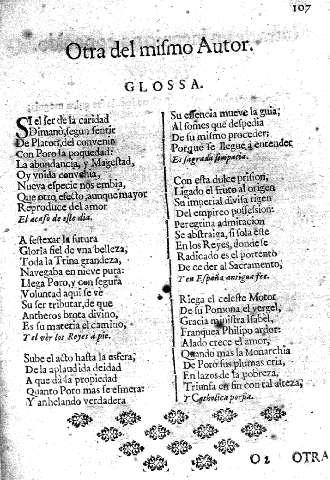 107
Otra del miſmo Autor.
GLOSSA.
SI el ſer de la caridad
Dimanò, ſegun ſentir
De Platon, del convenio
Con Poro ſa poquedad:
La abundancia, y Mageſtad,
Oy vnida convenia,
Nueva eſpecie nos embia,
Que otro efecto, aunque mayor
Reproduce del amor
El acaſo de eſte dia.
A feſtexar la futura
Gloria fiel de vna belleza,
Toda la Trina grandeza,
Navegaba en nieve pura:
Llega Poro, y con ſegura
Voluntad aqui ſe vè
Su ſer tributar, de que
Antheros brota divino,
Es ſu materia el camino,
Y el ver los Reyes à pie.
Sube el acto haſta la esfera,
De la aplaudida deidad
A que dà la propiedad
Quanto Poro mas ſe eſmera:
Y anhelando verdadera
Su eſſencia mueve la guia;
Al ſomes que deſpedia
De ſu miſmo proceder;
Porque ſe llegue à entender
Es ſagrada ſimpatia.
Con eſta dulce priſion,
Ligado el fruto al origen
Su imperial diviſa rigen
Del empireo poſſeſsion:
Peregrina admiracion
Se abſtraiga, ſi ſola eſte
En los Reyes, donde ſe
Radicado es el portento
De ceder al Sacramento,
Y en España antigua fee.
Riega el celeſte Motor
De ſu Pomona el vergel,
Gracia miniſtra Iſabel,
Franquea Philipo ardor:
Alado crece el amor,
Quando mas la Monarchia
De Poro ſus plumas cria,
En lazos de la pobreza,
Triunfa en fin con tal alteza,
Y Catholica porfia.
O 2 OTRA